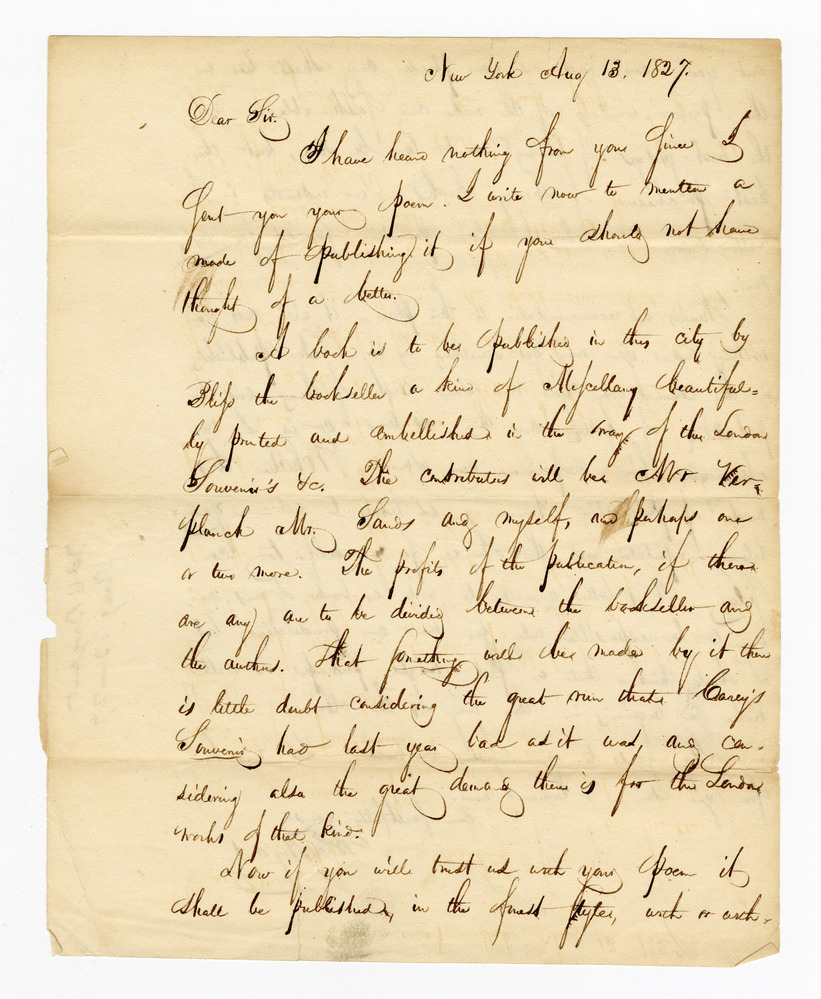 New York Aug 13. 1827.
Dear Sir.
I have heard nothing from you since I
sent you your poem. I write now to mention a
mode of publishing it if you should not have
thought of a better.
A book is to be published in this city by
Bliss the bookseller a kind of Miscellany beautiful=
ly printed and embellished in the way of the London
Souvenir's &c. The contributors will be Mr. Ver-
planck Mr. Sands and myself, and perhaps one
or two more. The profits of the publication, if there
are any are to be divided between the bookseller and
the authors. That something will be made by it there
is little doubt considering the great run that Carey's
Souvenir had last year bad as it was, and con-
sidering also the great demand there is for the London
works of that kind.
Now if you will trust us with your poem it
shall be published, in the finest style, with or with-